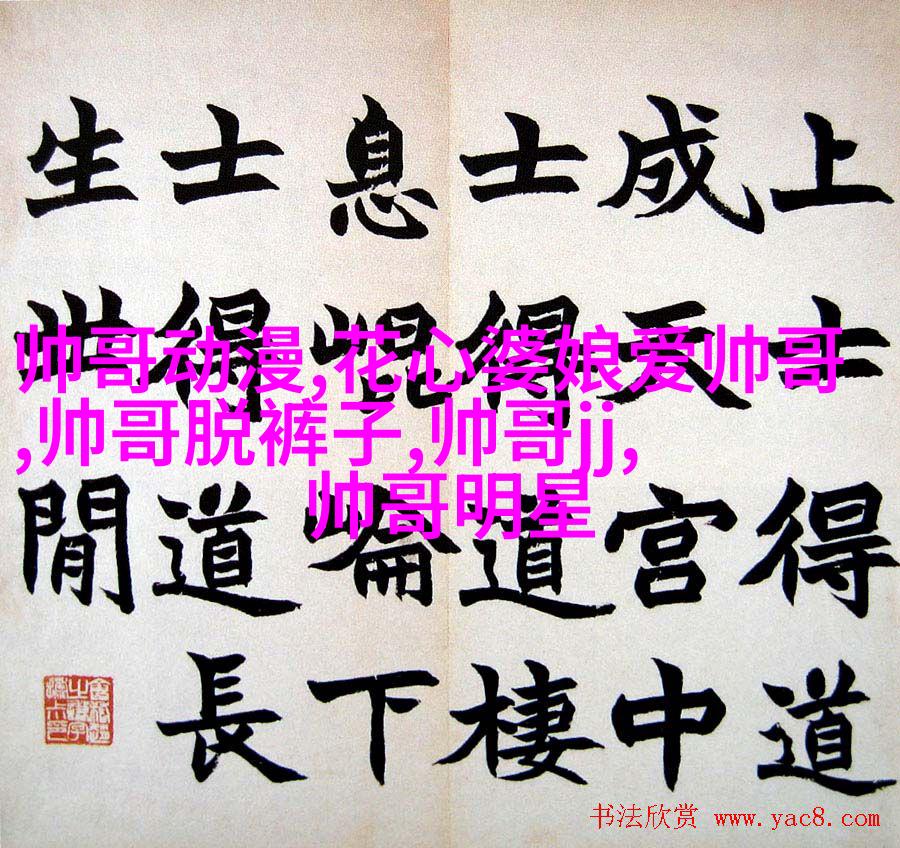 上士得道
成天宮中
士得道棲
息崐崘下
士得道長
生世閒
帅哥动漫,花心婆娘爱帅哥
,帅哥脱裤子,帅哥jj,
帅哥明星
书法欣赏 www.yac8.com